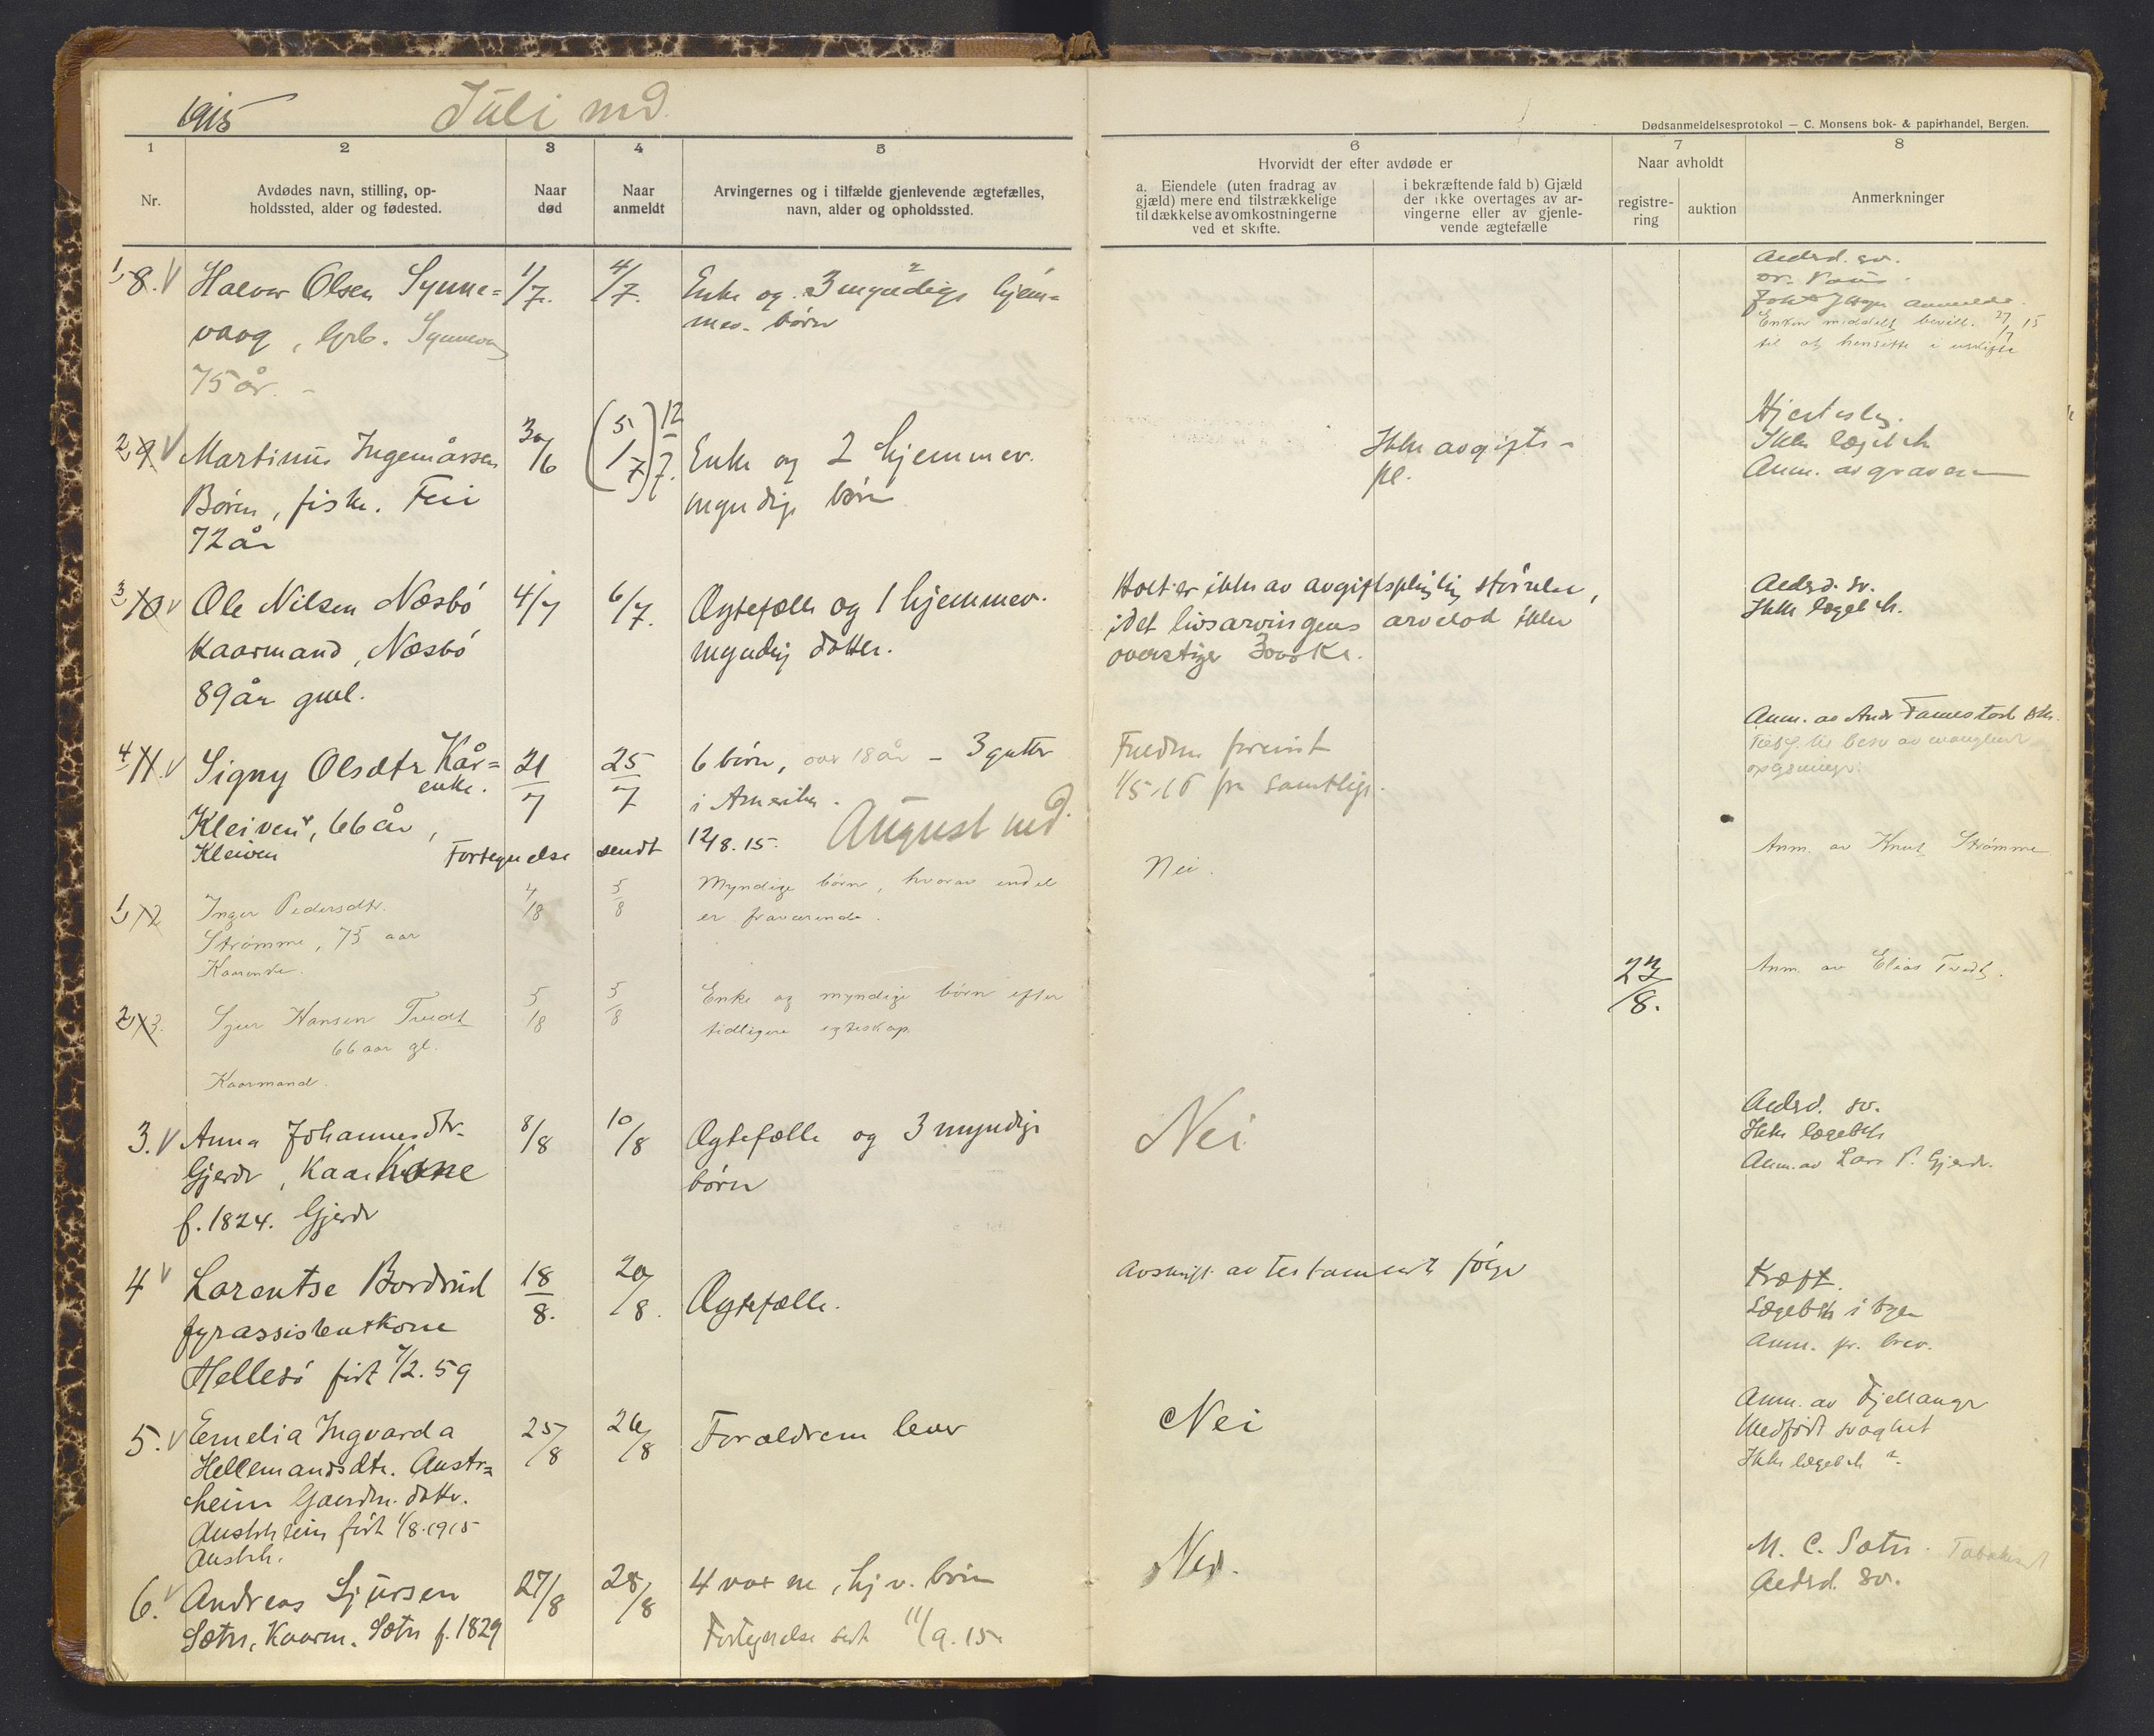 1915 Juli md.
Dødsanmeldelsesprotokol — C. Monsens bok- & papirhandel, Bergen.
1 2 3 4 5 6 7 8
Nr.
Avdødes navn, stilling, op-
holdssted, alder og fødested.
Naar
død
Naar
anmeldt
Arvingernes og i tilfælde gjenlevende ægtefælles,
navn, alder og opholdssted.
Hvorvidt der efter avdøde er
a. Eiendele (uten fradrag av
gjæld) mere end tilstrækkelige
til dækkelse av omkostningerne
ved et skifte.
i bekræftende fald b) Gjæld
der ikke overtages av ar-
vingerne eller av gjenle-
vende ægtefælle
Naar avholdt
registre-
ring
auktion
Anmerkninger
1 8. V Halvor Olsen Synne= 1/7. 4/7. Enke og 3 myndige hjem=
vaag, Grb. Synnevaag
mev. børn
75 år. -
Alderd. sv.
Enken meddelt bevill. 27/7 15
til at hensitte i uskifte
2 9 V Martinus Ingemårsen 30/6 (5/7) 12/7. Enke og 2 hjemmev.
Børen, fisk. Feie
myndige børn
72 år
Ikke avgifts-
pl.
Hjertesly.
Ikke lægebeh
Anm. av graveren
3 10 V Ole Nilsen Næsbø 4/7 6/7. Ægtefælle og 1 hjemmev.
Kaarmand, Næsbø
myndig datter.
89 år gml.
Boet er ikke av avgiftspligtig størrelse,
idet livsarvingens arvelod ikke
overstiger
Aldrd. sv.
Ikke lægebeh.
4 11 V Signy Olsdtr Kår= 21/7 25/7 6 børn, over 18 år - 3 gutter
enke.
i Amerika.
Kleiven, 66 år,
Kleiven Fortegnelse sendt 12/8.15.
1/5.16 fra samtlige.
Anm. av Andr
August md.
1 12 Inger Pedersdtr. 4/8 5/8 Myndige børn, hvorav endel
Strømme, 75 aar
er fraværende.
Kaarenke.
Nei.
Anm. av Knut Strømme
2 13. Sjur Hansen Tvedt 5/8 5/8 Enke og myndige børn efter
66 aar gl.
tidligere egteskap.
Kaarmand.
27/8.
Anm. av Elias Tvedt.
3. V Anna Johannesdtr. 8/8 10/8 Ægtefælle og 3 myndige
Gjerde, Kaarkone
børn
f. 1824. Gjerde
Nei
Aldrd. sv.
Ikke lægebeh
Anm. av Lars P. Gjerde.
4 V Larentse Bordvid 18/8. 20/8. Ægtefælle.
fyrassistentkone
Hellesø født 7/2.59
Avskrift av testamentet følger
Kræft.
Lægebeh i byen
Anm. pr. brev.
5. V Emelia Ingvarda 25/8 26/8 Forældrene lever
Hellemandsdtr. Austr=
heim Gaardm. datter.
Austrheim født 1/8.1915
Austrh.
Nei
Anm. av Fjellanger
Medfødt svaghet
Ikke lægebeh ?
6. V Andreas Sjursen 27/8 28/8 4 voxne, hjv. børn
Sætre, Kaarm. Sætre f. 1829
Fortegnelse sendt 11/9.15.
Nei.
M. C. Sætre.
Aldrd. sv.